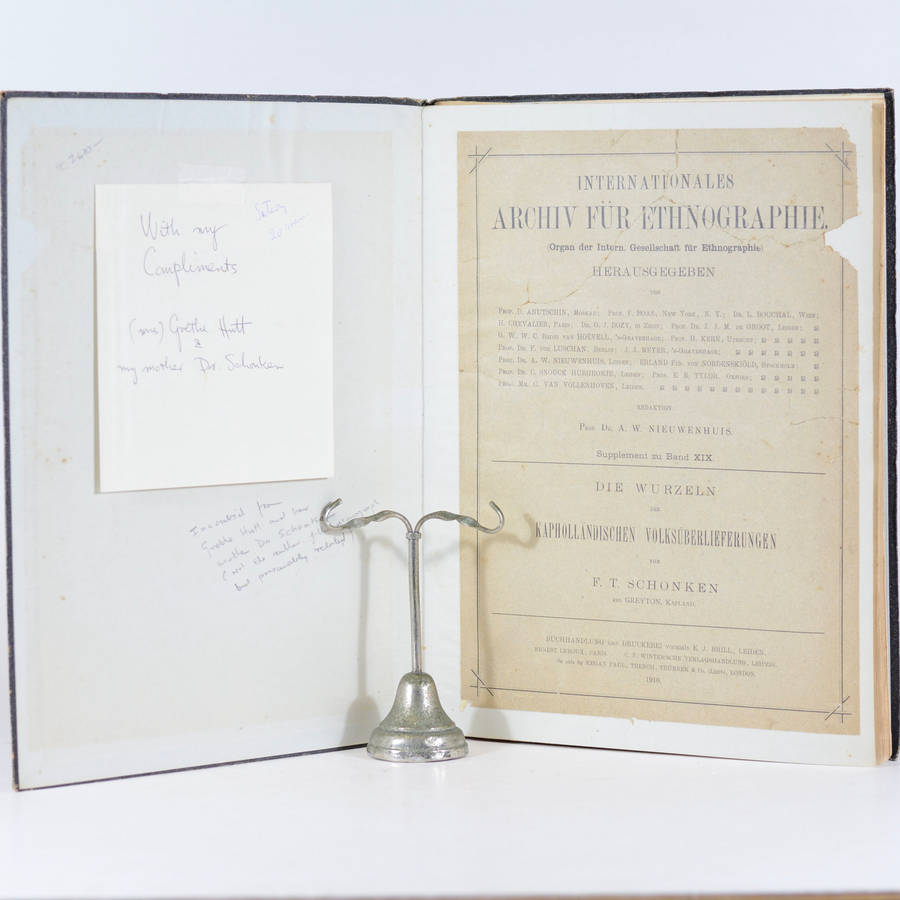 With my
Compliments
(mrs) Grethe Hutt
&
my mother Dr. Schonken
Inscribed from
Grethe Hutt and her
mother Dr Schonken
(not the author
but presumably related)
INTERNATIONALES
ARCHIV FÜR ETHNOGRAPHIE.
(Organ der Intern. Gesellschaft für Ethnographie)
HERAUSGEGEBEN
VON
Prof. D. ANUTSCHIN, Moskau; Prof. F. BOAS, New York, N. Y.; Dr. L. BOUCHAL, Wien;
H. CHEVALIER, Paris; Dr. G. J. DOZY, im Haag; Prof. Dr. J. J. M. de GROOT, Leiden;
G. W. W. C. Baron van HOËVELL, 's-Gravenhage; Prof. H. KERN, Utrecht;
Prof. Dr. F. von LUSCHAN, Berlin; J. J. MEYER, 's-Gravenhage;
Prof. Dr. A. W. NIEUWENHUIS, Leiden; ERLAND Frh. von NORDENSKJÖLD, Stockholm;
Prof. Dr. C. SNOUCK HURGRONJE, Leiden; Prof. E. B. TYLOR, Oxford;
Prof. Mr. C. VAN VOLLENHOVEN, Leiden.
REDAKTION:
Prof. Dr. A. W. NIEUWENHUIS.
Supplement zu Band XIX.
DIE WURZELN
DER
KAPHOLLÄNDISCHEN VOLKSÜBERLIEFERUNGEN
VON
F. T. SCHONKEN
AUS GREYTON, KAPLAND.
BUCHHANDLUNG und DRUCKEREI vormals E. J. BRILL, LEIDEN.
ERNEST LEROUX, PARIS. C. F. WINTER'SCHE VERLAGSHANDLUNG, LEIPZIG.
On sale by KEGAN PAUL, TRENCH, TRÜBNER & Co. (Limtd), LONDON.
1910.